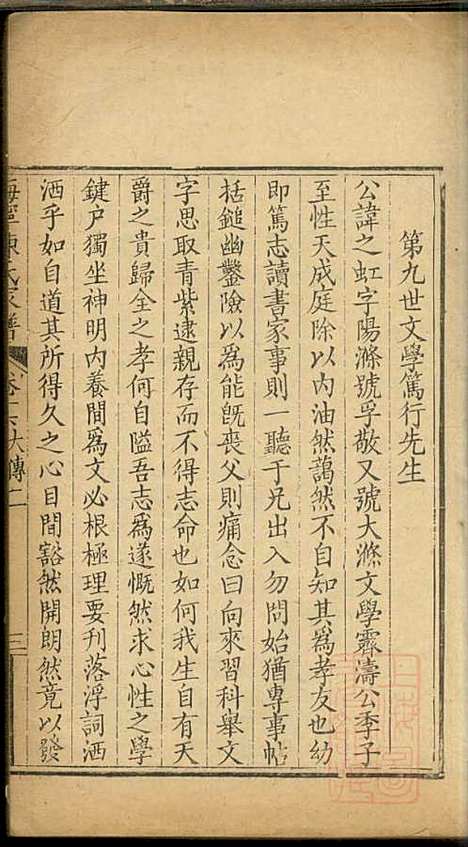 第九世文學篤行先生
公諱之虹字陽滌號孚敬又號大滌文學霽濤公季子
至性天成庭除以內油然藹然不自知其為孝友也幼
即篤志讀書家事則一聽于兄出入勿問始猶專事帖
括鎚幽鑿險以為能旣喪父則痛念曰向來習科舉文
字思取青紫逮親存而不得志命也如何我生自有天
爵之貴歸全之孝何自隘吾志為遂慨然求心性之學
鍵户獨坐神明內養間為文必根極理要刊落浮詞洒
洒乎如自道其所得久之心目間豁然開朗然竟以發
海寧陳氏家譜 卷二六大傳二 三